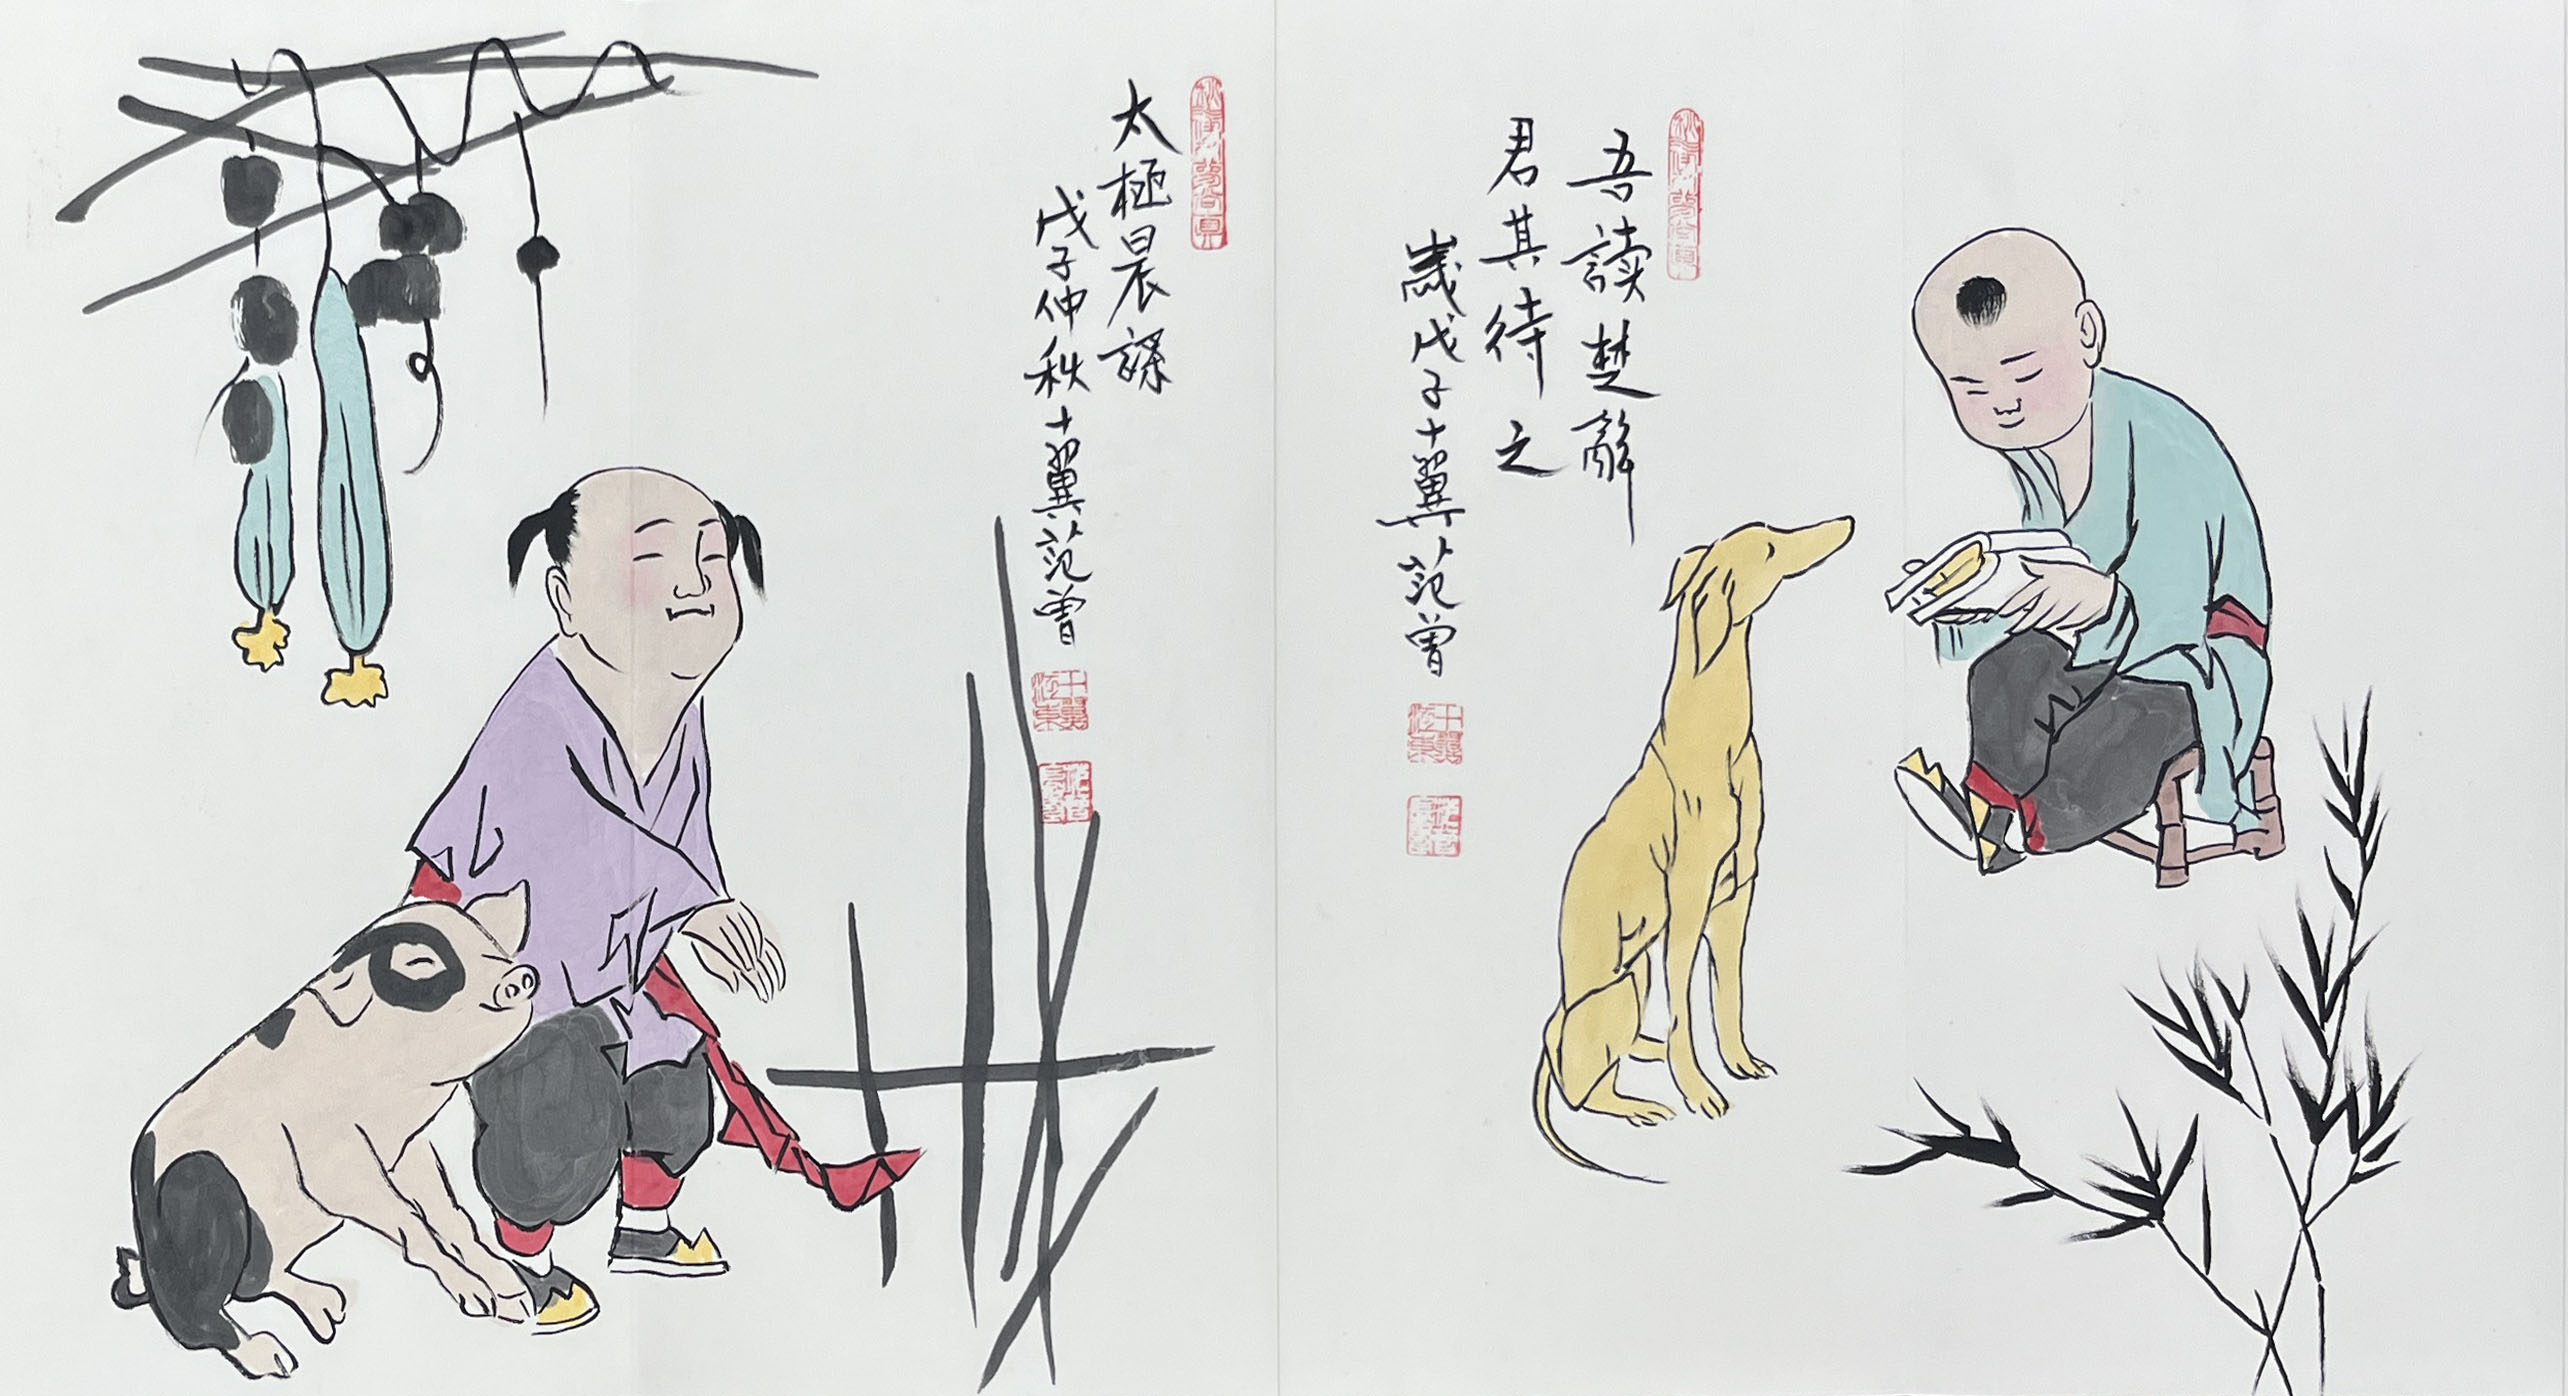 吾讀楚辭
君其待之
歲戊子十翼范曾
太極晨課
戊子仲秋十翼范曾
十翼
江東